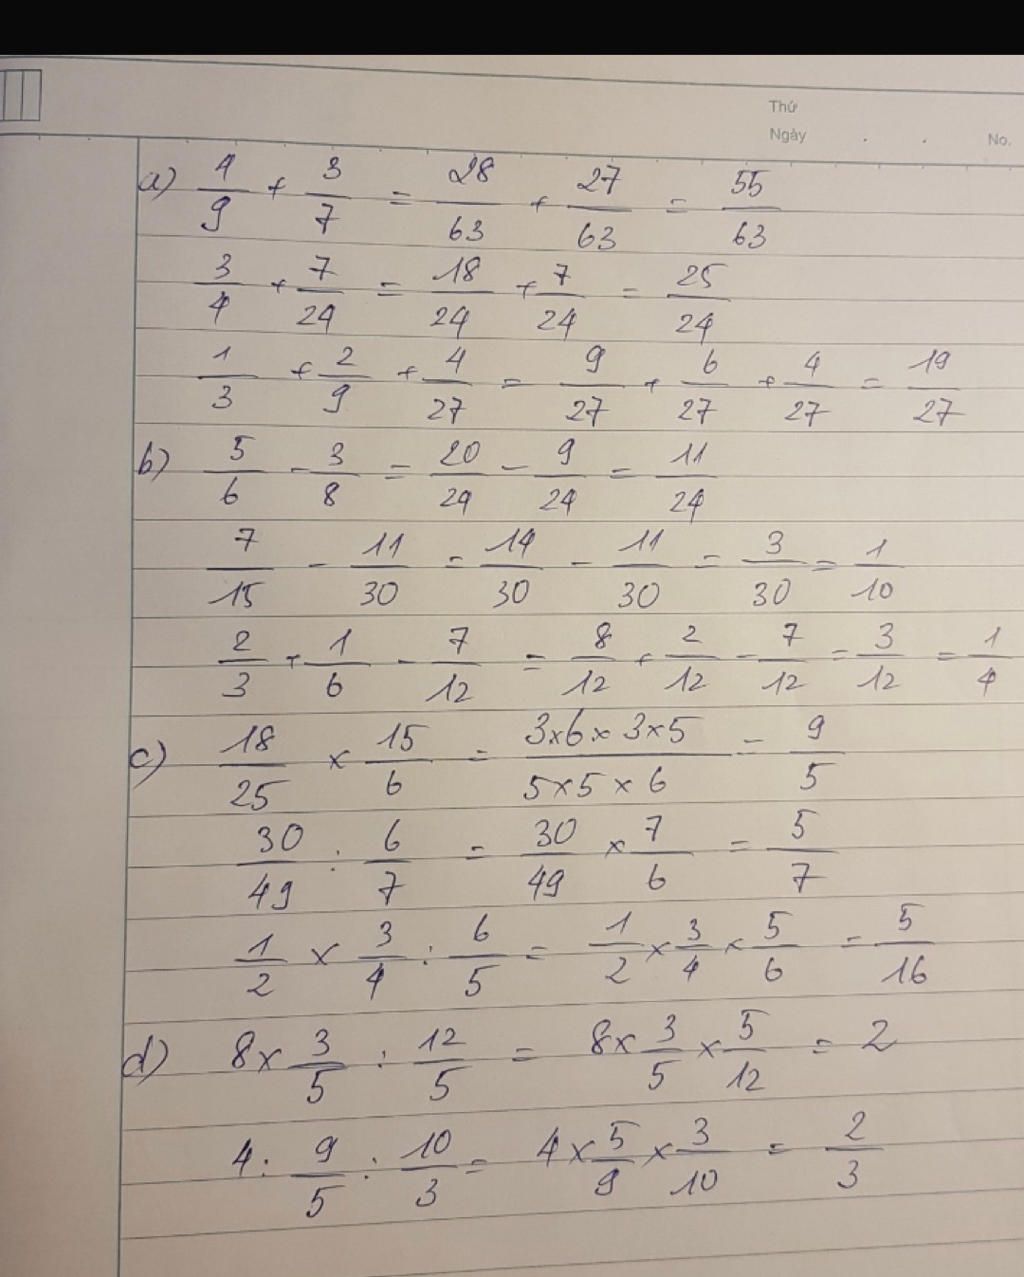 Thứ
Ngày . . No.
a) 4/9 + 3/7 = 28/63 + 27/63 = 55/63
3/4 + 7/24 = 18/24 + 7/24 = 25/24
1/3 + 2/9 + 4/27 = 9/27 + 6/27 + 4/27 = 19/27
b) 5/6 - 3/8 = 20/24 - 9/24 = 11/24
7/15 - 11/30 = 14/30 - 11/30 = 3/30 = 1/10
2/3 + 1/6 - 7/12 = 8/12 + 2/12 - 7/12 = 3/12 = 1/4
c) 18/25 × 15/6 = 3×6×3×5/5×5×6 = 9/5
30/49 : 6/7 = 30/49 × 7/6 = 5/7
1/2 × 3/4 : 6/5 = 1/2 × 3/4 × 5/6 = 5/16
d) 8 × 3/5 : 12/5 = 8 × 3/5 × 5/12 = 2
4 : 9/5 : 10/3 = 4 × 5/9 × 3/10 = 2/3